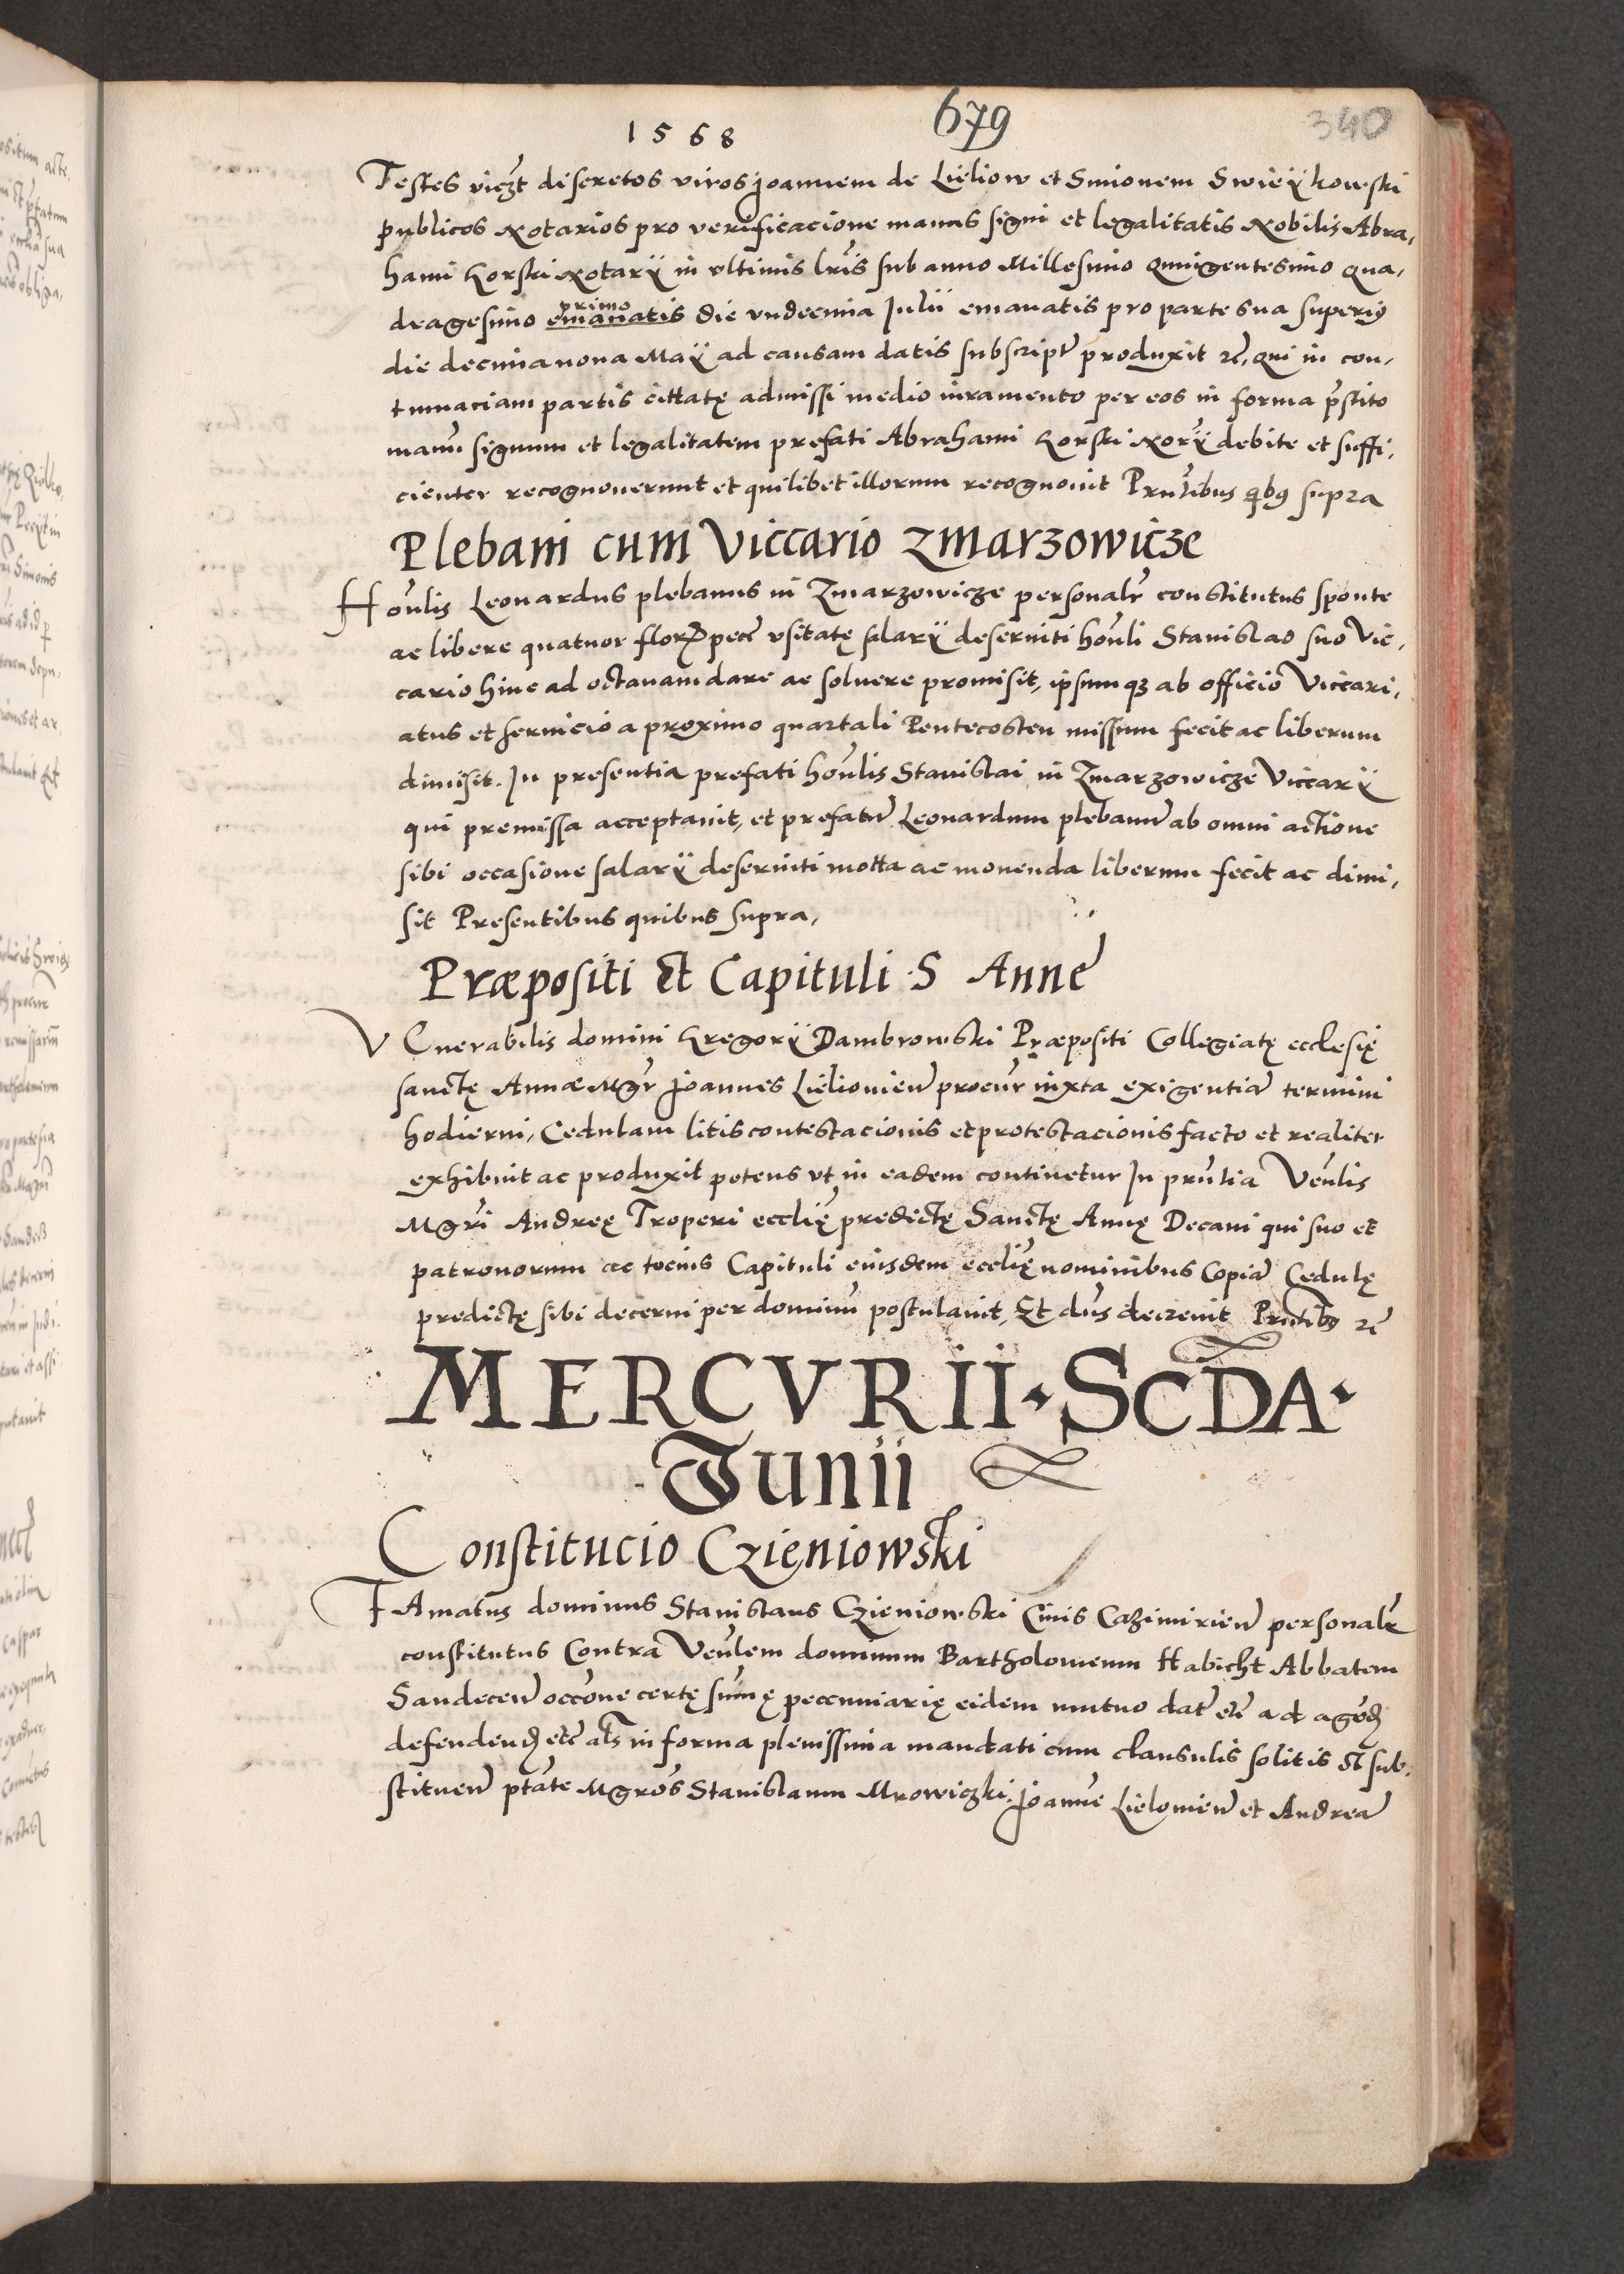 1568
679
340
Testes viczt discretos viros Joannem de Lieliow et Simonem Swieÿkowski
publicos Notarios pro verificacione manus signi et legalitatis Nobilis Abra,
hami Gorski Notarÿ in ultimis lris sub anno Millesimo quingentesimo qua,
dragesimo emanatis primo die undecima Julii emanatis pro parte sua superiq
die decima nona Maÿ ad causam datis subscriptr produxit rc, qui in con,
tumaciam partis cittatę admissi medio iuramento per eos in forma prstito
manu signum et legalitatem prefati Abrahami Gorski Norÿ debite et suffi,
cienter recognoverunt et quilibet illorum recognovit Prntibus qbq supra
Plebani cum Viccario Zmarzowicze
Honlis Leonardus plebanus in Zmarzowicze personalr constitutus sponte
ac libere quatuor flor pec usitatę salarÿ deserviti honli Stanislao suo Vic,
cario hinc ad octavam dare ac solvere promisit, ipsumqz ab officio Viccari,
atus et servicio a proximo quartali Pentecosten missum fecit ac liberum
dimisit. In presentia prefati honlis Stanislai in Zmarzowicze Viccarÿ
qui premissa acceptavit, et prefatu Leonardum plebanu ab omni actione
sibi occasione salarÿ deserviti motta ac movenda liberum fecit ac dimi,
sit Presentibus quibus supra,
Præpositi et Capituli S Anne
VEnerabilis domini Gregorÿ Dambrowski Præpositi Collegiatę ecclesię
sanctę Annæ Mgr Joannes Lielioview procur iuxta exigentia termini
hodierni, Cedulam litis contestacionis et protestacionis facto et realiter
exhibuit ac produxit petens ut in eadem continetur In prntia Venlis
Mgri Andreę Troperi ecclię predictę Sanctę Annę Decani qui suo et
patronorum ac tocius Capituli eiusdem ecclię nominibus Copia Cedulę
predictę sibi decerni per dominu postulavit, Et dns decrevit Prntibq rc
MERCVRII · SCDA ·
Junii
Constitucio Czieniowski
FAmatus dominus Stanislaus Czieniowski Civis Cazimirien personalr
constitutus Contra Venlem dominum Bartholomeum Habicht Abbatem
Sandecen occone certę sumę pecunniarię eidem mutuo dat etc ad agend
defendend etc als in forma plenissima mandati cum clausulis solitis et sub,
stituen ptate Mgros Stanislaum Mrowiczki, Joanne Lielovien et Andrea